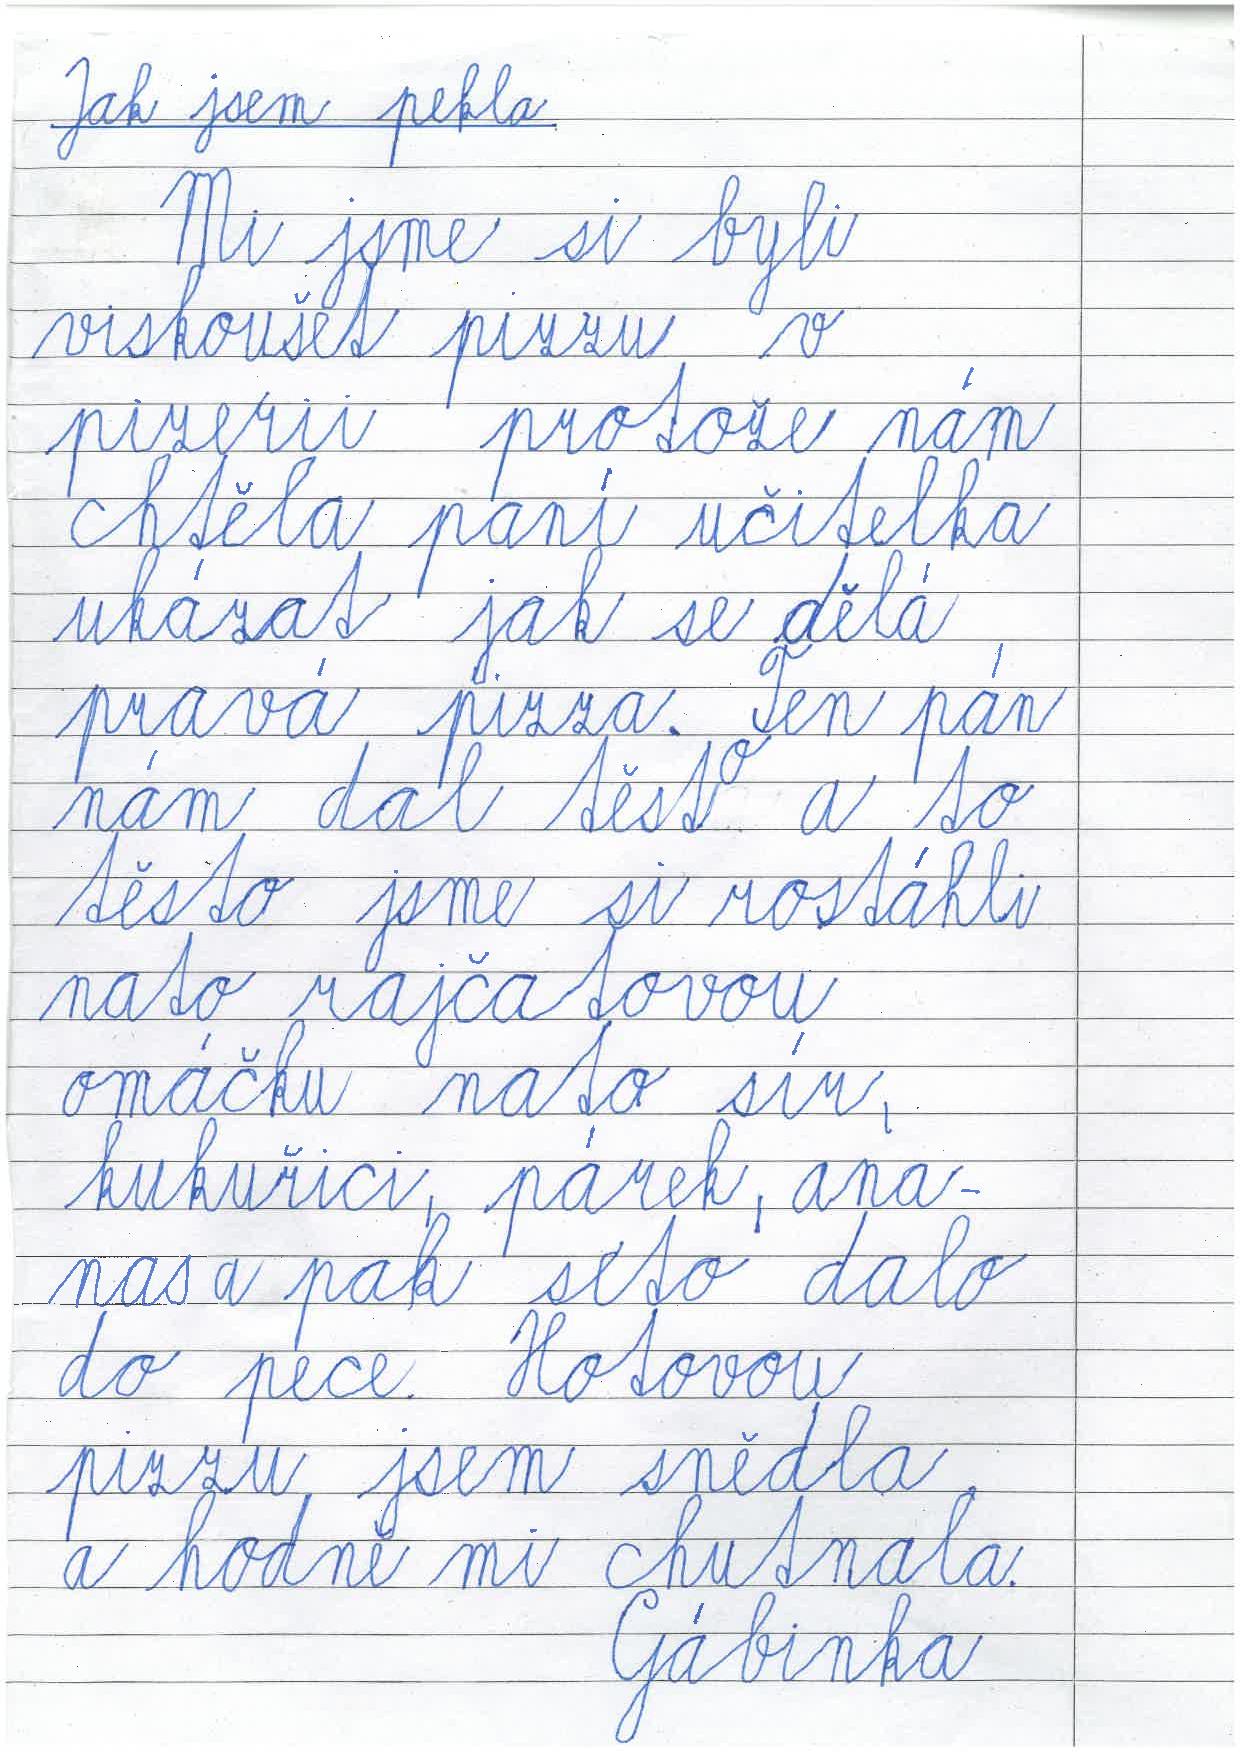 Jak jsem pekla
Mi jsme si byli
viskoušet pizzu v
pizerii protože nám
chtěla paní učitelka
ukázat jak se dělá
pravá pizza. Ten pán
nám dal těsto a to
těsto jsme si rostáhli
nato rajčatovou
omáčku nato sír,
kukuřici, párek, ana-
nas a pak seto dalo
do pece. Hotovou
pizzu jsem snědla
a hodně mi chutnala.
Gábinka